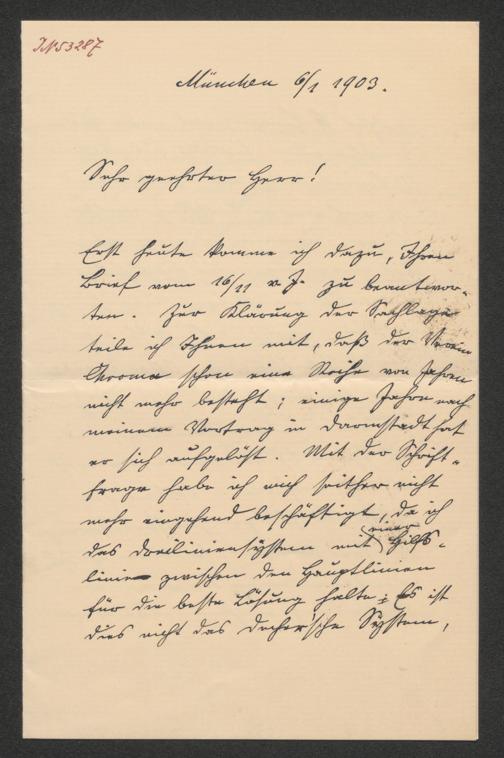 IN 53287
München 6/1 1903.
Sehr geehrter Herr!
Erst heute komme ich dazu, Ihren
Brief vom 16/11 v. J. zu beantwor-
ten. Zur Klärung der Sachlage
teile ich Ihnen mit, daß der Verein
Chroma schon eine Reihe von Jahren
nicht mehr besteht; einige Jahre nach
meinem Vortrag in Darmstadt hat
er sich aufgelöst. Mit der Schrift-
frage habe ich mich seither nicht
mehr eingehend beschäftigt, da ich
das Dreiliniensystem mit einer Hilfs-
linie zwischen den Hauptlinien
für die beste Lösung halte; Es ist
dies nicht das Decher'sche System,